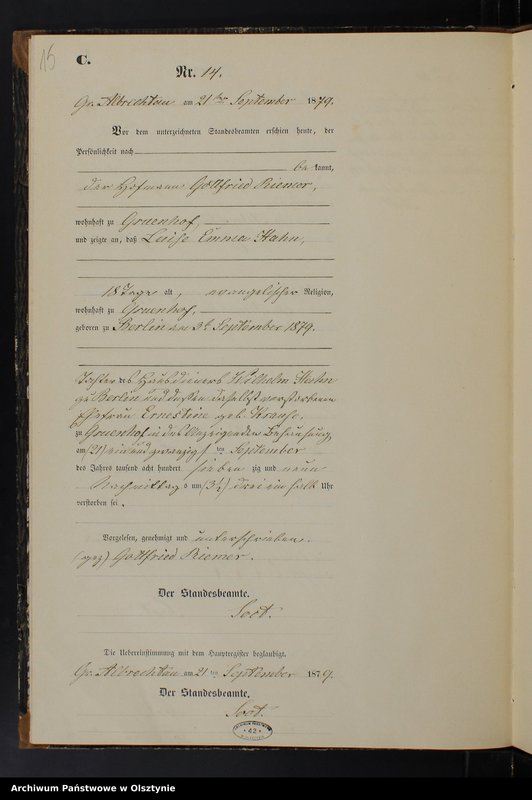 15
C.
Nr. 14.
Gr. Albrechtau am 21 ten September 1879.
Vor dem unterzeichneten Standesbeamten erschien heute, der
Persönlichkeit nach
be kannt,
der Hofmann Gottfried Riemer,
wohnhaft zu Gruenhof,
und zeigte an, daß Luise Emma Hahn,
18 Tage alt, evangelischer Religion,
wohnhaft zu Gruenhof,
geboren zu Berlin am 3t. September 1879.
Tochter des Hausdieners Wilhelm Hahn
zu Berlin und dessen daselbst verstorbenen
Ehefrau Ernestine geb. Krause.
zu Gruenhof in des Anzeigenden Behausung,
am (21) ein und zwanzig ten September
des Jahres tausend acht hundert sieben zig und neun
Nachmittag s um (3½) drei ein halb Uhr
verstorben sei.
Vorgelesen, genehmigt und unterschrieben.
(gez) Gottfried Riemer.
Der Standesbeamte.
Die Uebereinstimmung mit dem Hauptregister beglaubigt.
Gr. Albrechtau am 21 ten September 1879.
Der Standesbeamte.
42
Archiwum Państwowe w Olsztynie